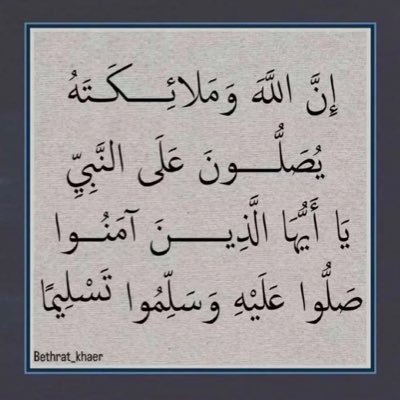 إِنَّ اللَّهَ وَمَلائِـــكَـتَهُ
يُصَلُّـــونَ عَلَى النَّبِيِّ
يَا أَيُّهَا الَّذِيـــنَ آمَنُــوا
صَلُّوا عَلَيْهِ وَسَلِّمُوا تَسْلِيمًا
Bethrat_khaer